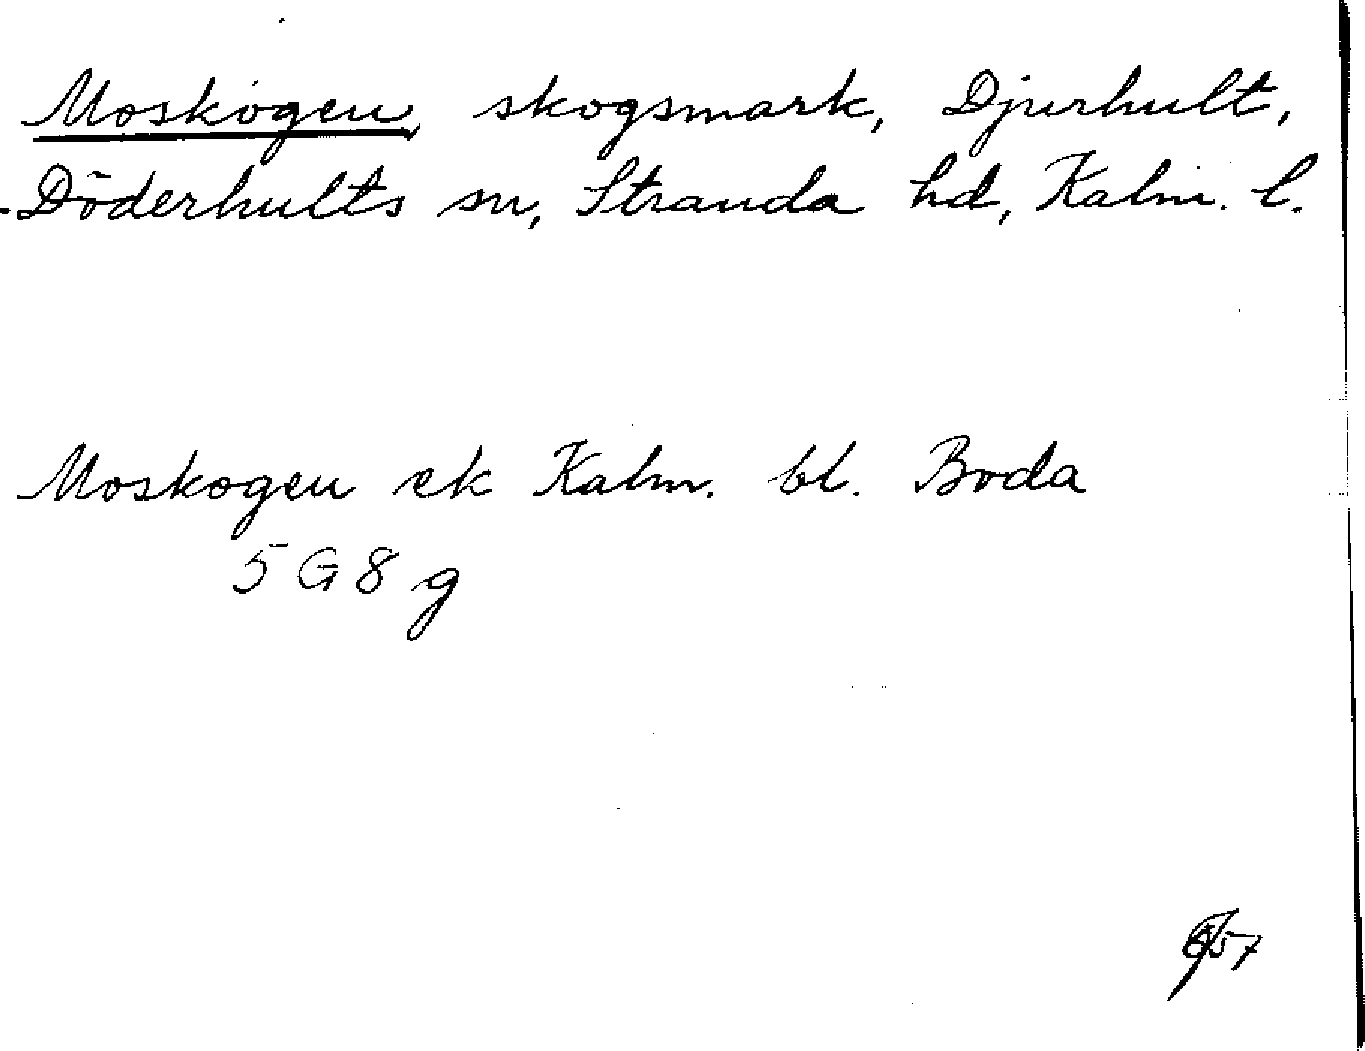 Moskogen, skogsmark, Djurhult,
Döderhults sn, Stranda hd, Kalm. l.
Moskogen ek Kalm. bl. Boda
5 G 8 g
57